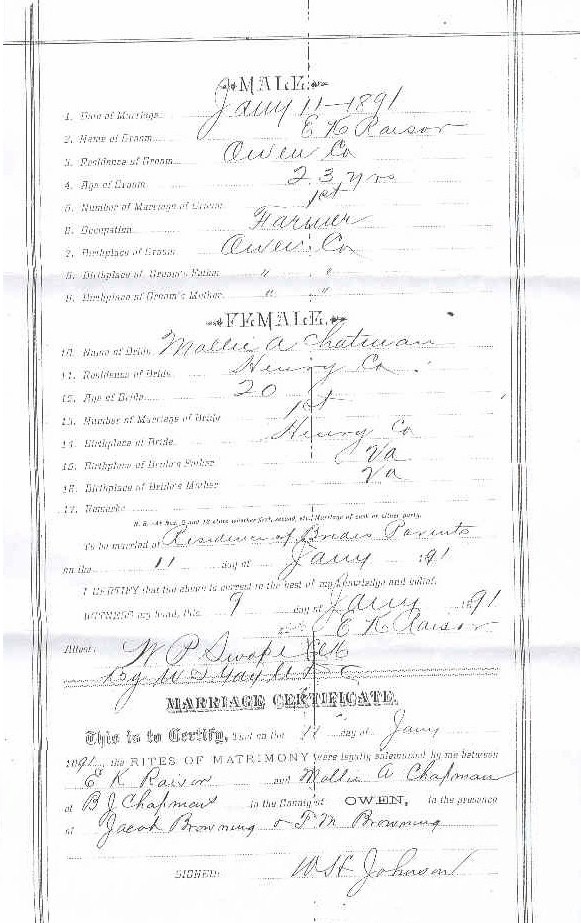 MALE.
1. Date of Marriage Jany 11-1891
2. Name of Groom E K Raisor
3. Residence of Groom Owen Co
4. Age of Groom 23 yrs
5. Number of Marriage of Groom 1st
6. Occupation Farmer
7. Birthplace of Groom Owen Co
8. Birthplace of Groom's Father " "
9. Birthplace of Groom's Mother " "
FEMALE.
10. Name of Bride Mollie A Chatman
11. Residence of Bride Henry Co
12. Age of Bride 20
13. Number of Marriage of Bride 1st
14. Birthplace of Bride Henry Co
15. Birthplace of Bride's Father Va
16. Birthplace of Bride's Mother Va
17. Remarks
N. B.—At Nos. 5 and 13 state whether first, second, etc., Marriage of each or either party.
To be married at Residence of Brides Parents
on the 11 day of Jany 191
I CERTIFY that the above is correct to the best of my knowledge and belief.
WITNESS my hand, this 9 day of Jany 1891
E K Raisor
Attest: W P Swope Clk
By W S Gayle D C
MARRIAGE CERTIFICATE.
This is to Certify, that on the 11 day of Jany
1891, the RITES OF MATRIMONY were legally solemnized by me between
E K Raisor and Mollie A Chapman
at B J Chapmans in the County of OWEN, in the presence
of Jacob Browning & F M Browning
SIGNED: W H Johnson